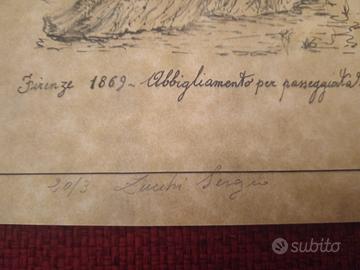 Firenze 1869 - Abbigliamento per passeggiata
20/3 Lucchi Sergio
subito